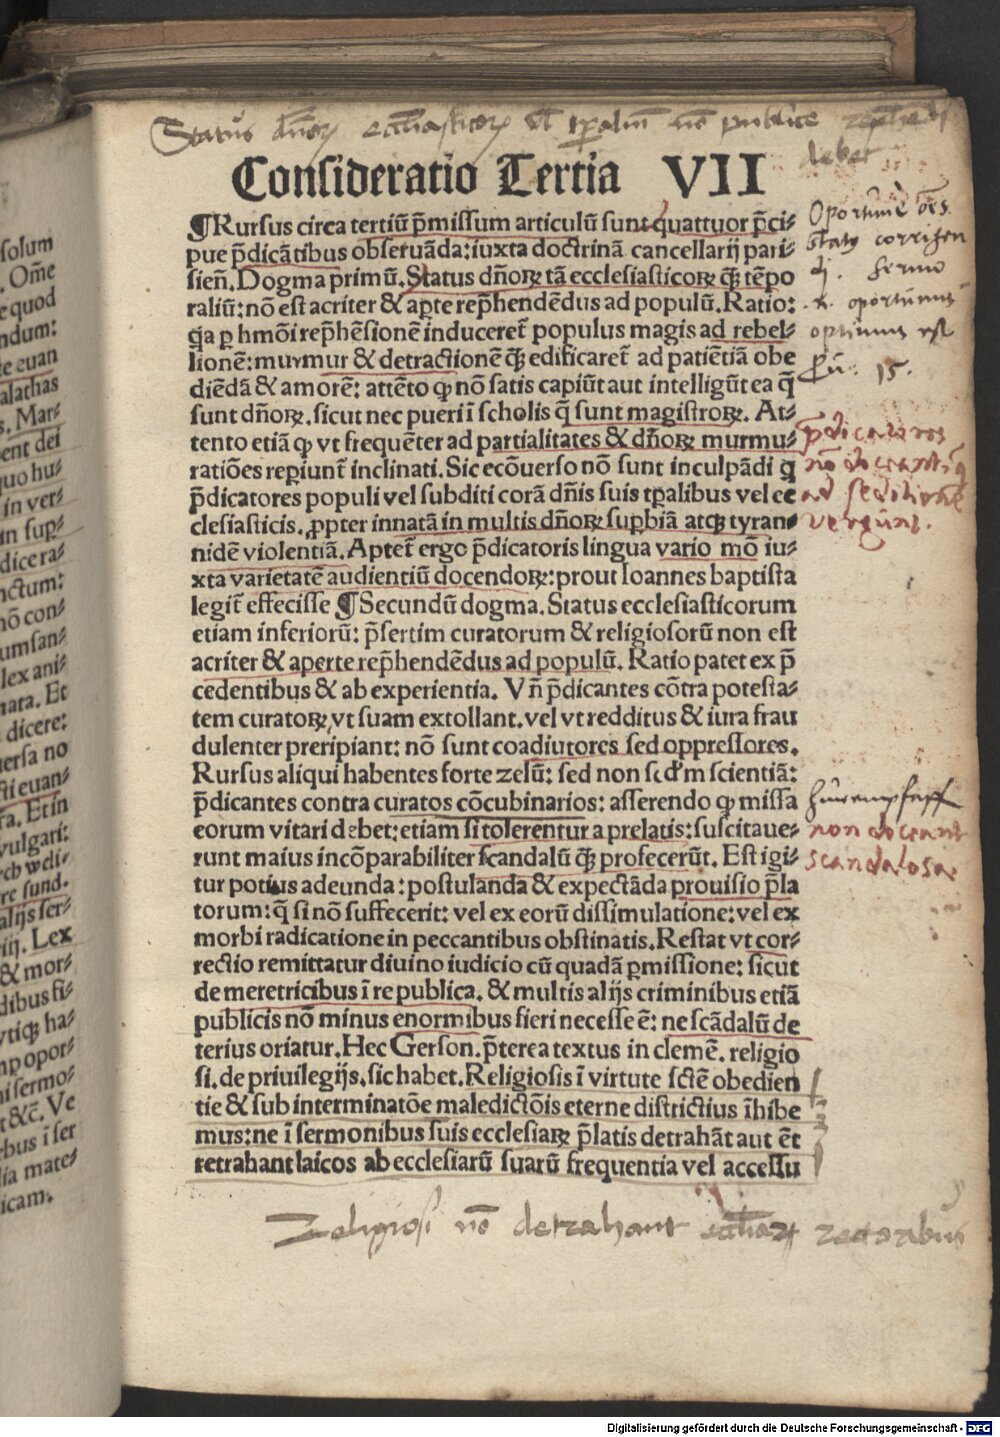 Status dn̄oꝝ ecclīasticoꝝ vl̄ tp̄aliū nō publice repħendi
debet
Consideratio Tertia VII
¶Rursus circa tertiū p̄missum articulū sunt quattuor p̄ci⸗
pue p̄dicātibus obseruāda:iuxta doctrinā cancellarij pari⸗
sieñ. Dogma primū. Status dñoꝝ tā ecclesiasticoꝝ ꝙ̄ tēpo
raliū: nō est acriter & aꝑte rep̄hendēdus ad populū. Ratio:
q̄a ꝑ hmōi rep̄hēsionē induceret̄ populus magis ad rebel⸗
lionē: murmur & detractionē ꝙ̄ edificaret̄ ad patiētiā obe
diēdā & amorē: attēto ꝙ nō satis capiūt aut intelligūt ea q̄
sunt dñoꝝ. sicut nec pueri ī scholis q̄ sunt magistroꝝ. At⸗
tento etiā ꝙ vt frequēter ad partialitates & dñoꝝ murmu⸗
ratiōes reꝑiunt̄ inclinati. Sic ecōuerso nō sunt inculpādi q
p̄dicatores populi vel subditi corā dñis suis tꝑalibus vel ec
clesiasticis. ꝓpter innatā in multis dñoꝝ suꝑbiā atqꝫ tyran⸗
nidē violentiā. Aptet̄ ergo p̄dicatoris lingua vario mō iu⸗
xta varietatē audientiū docendoꝝ: prout Ioannes baptista
legit̄ effecisse ¶Secundū dogma. Status ecclesiasticorum
etiam inferiorū: p̄sertim curatorum & religiosorū non est
acriter & aperte rep̄hendēdus ad populū. Ratio patet ex p̄
cedentibus & ab experientia. Vñ p̄dicantes cōtra potesta⸗
tem curatoꝝ, vt suam extollant. vel vt redditus & iura frau
dulenter preripiant: nō sunt coadiutores sed oppressores.
Rursus aliqui habentes forte zelū: sed non scd'm scientiā:
p̄dicantes contra curatos cōcubinarios: asserendo ꝙ missa
eorum vitari debet: etiam si tolerentur a prelatis: suscitaue⸗
runt maius incōparabiliter scandalū ꝙ̄ profecerūt. Est igi⸗
tur potius adeunda: postulanda & expectāda prouisio p̄la
torum: q̄ si nō suffecerit: vel ex eorū dissimulatione: vel ex
morbi radicatione in peccantibus obstinatis. Restat vt cor⸗
rectio remittatur diuino iudicio cū quadā ꝑmissione: sicut
de meretricibus ī re publica. & multis alijs criminibus etiā
publicis nō minus enormibus fieri necesse ē: ne scādalū de
terius oriatur. Hec Gerson. p̄terea textus in clemē. religio
si. de priuilegijs. sic habet. Religiosis ī virtute sctē obedien
tie & sub interminatōe maledictōis eterne districtius īhibe
mus: ne ī sermonibus suis ecclesiaꝝ p̄latis detrahāt aut ēt
retrahant laicos ab ecclesiarū suarū frequentia vel accessu
Religiosi nō detrahant eccliaꝝ rectoribus
Oportune oēs
status corrigen
di. Sermo
oportunus
optimus est
ꝓū. 15.
p̄dicatores
nō doceant
ad seditionē
vergunt.
hurenpfaff
non doceant
scandalosa
solum
. Om̄e
e quod
ndum:
te euan
alathas
s. Mar⸗
ent dei
quo hu⸗
in ver⸗
in suꝑ⸗
dicera⸗
nctum:
nō con⸗
umsan⸗
lex ani⸗
nata. Et
dicere:
uersa no
sti euan⸗
ra. Et in
vulgari:
rch weli⸗
re sund.
alijs ser⸗
iij. Lex
& mor⸗
dibus fi⸗
vtiqꝫ ha⸗
mp opor⸗
ni sermo⸗
t &c̄. Ve
ebus ī ser
lia mate⸗
icam.
Digitalisierung gefördert durch die Deutsche Forschungsgemeinschaft - DFG